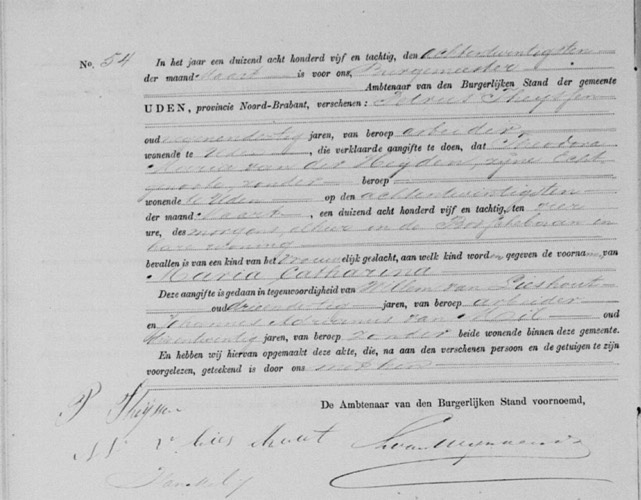 No. 54 In het jaar een duizend acht honderd vijf en tachtig, den achtentwintigsten
der maand Maart is voor ons, Burgemeester
Ambtenaar van den Burgerlijken Stand der gemeente
UDEN, provincie Noord-Brabant, verschenen: Petrus Theyssen
oud negenendertig jaren, van beroep arbeider
wonende te Uden, die verklaarde aangifte te doen, dat Theodora
Maria van der Heyden, zijne Echt
genoote, zonder beroep
wonende te Uden op den achtentwintigsten
der maand Maart, een duizend acht honderd vijf en tachtig, ten vier
ure, des morgens, alhier in de in
hare woning
bevallen is van een kind van het vrouwelijk geslacht, aan welk kind worden gegeven de voornamen van
Maria Catharina
Deze aangifte is gedaan in tegenwoordigheid van Willem van Lieshout
oud jaren, van beroep arbeider
en Johannes Adrianus van oud
jaren, van beroep zonder beide wonende binnen deze gemeente.
En hebben wij hiervan opgemaakt deze akte, die, na aan den verschenen persoon en de getuigen te zijn
voorgelezen, geteekend is door ons met hen
De Ambtenaar van den Burgerlijken Stand voornoemd,